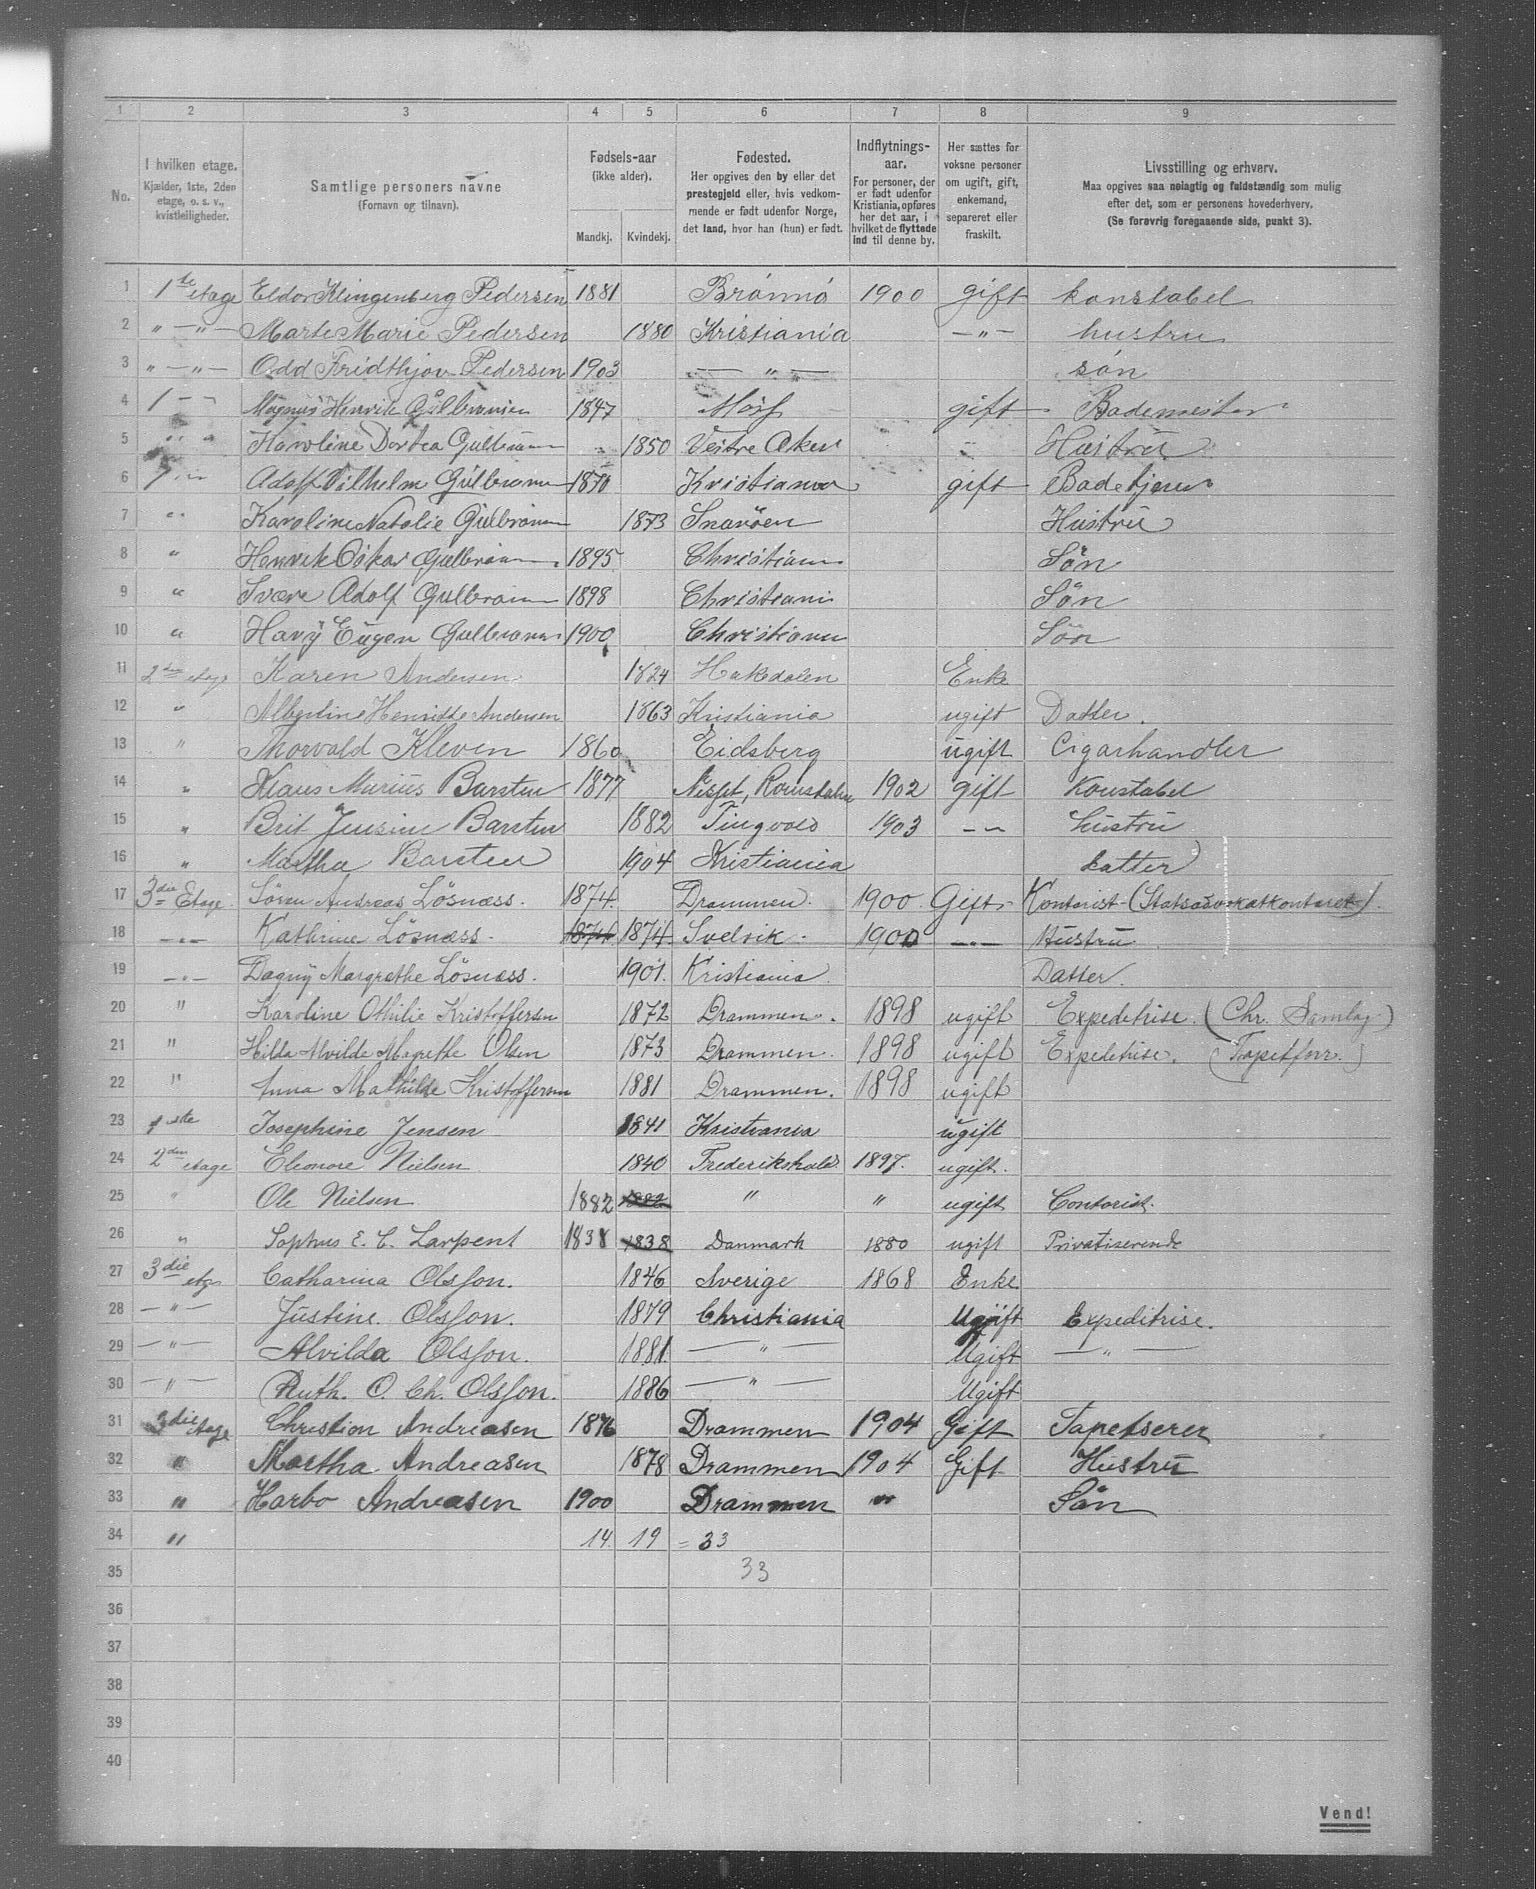 1 2 3 4 5 6 7 8 9
No.
I hvilken etage. Kjælder, 1ste, 2den etage, o. s. v., kvistleiligheder.
Samtlige personers navne (Fornavn og tilnavn).
Fødsels-aar (ikke alder). Mandkj. Kvindekj.
Fødested. Her opgives den by eller det prestegjeld eller, hvis vedkommende er født udenfor Norge, det land, hvor han (hun) er født.
Indflytnings-aar. For personer, der er født udenfor Kristiania, opføres her det aar, i hvilket de flyttede ind til denne by.
Her sættes for voksne personer om ugift, gift, enkemand, separeret eller fraskilt.
Livsstilling og erhverv. Maa opgives saa nøiagtig og fuldstændig som mulig efter det, som er personens hovederhverv. (Se forøvrig foregaaende side, punkt 3).
1 1ste etage Eldor Klingenberg Pedersen 1881 Brønnø 1900 gift konstabel
2 " — " — Marte Marie Pedersen 1880 Kristiania — " — hustru
3 " — " — Odd Fridthjov Pedersen 1903 — " — søn
4 1 — " Magnus Henrik Gulbransen 1847 Moss gift Bademester
5 " " Karoline Dortea Gulbransen 1850 Vestre Aker " Hustru
6 1 " Adolf Vilhelm Gulbransen 1870 Kristiania gift Badetjener
7 " Karoline Natalie Gulbransen 1873 Snarøen Hustru
8 " Henrik Oskar Gulbransen 1895 Christiania Søn
9 " Svære Adolf Gulbransen 1898 Christiania Søn
10 " Havy Eugen Gulbransen 1900 Christiania Søn
11 2den etage Karen Andersen 1824 Hakedalen Enke
12 " Albertine Henriette Andersen 1863 Kristiania ugift Datter.
13 " Thorvald Kleven 1860 Eidsberg ugift Cigarhandler
14 " Klaus Marius Barsten 1877 Nesset, Romsdalen 1902 gift Konstabel
15 " Brit Jensine Barsten 1882 Tingvold 1903 — " — hustru
16 " Martha Barsten 1904 Kristiania datter
17 3die Etage Søren Andreas Løsnæss. 1874. Drammen. 1900 Gift. Kontorist (Statsadvokatkontoret).
18 — " — Kathrine Løsnæss. 1874 1874. Svelvik. 1900 — " — Hustru
19 — " — Dagny Margrethe Løsnæss. 1901. Kristiania. Datter.
20 " Karoline Othilie Kristoffersen 1872 Drammen. 1898 ugift Expeditrise. (Chr. Samlag)
21 " Hilda Alvilde Magrethe Olsen 1873 Drammen. 1898 ugift Expeditrise. (Tapetforr.)
22 " Anna Mathilde Kristoffersen 1881 Drammen. 1898 ugift
23 1ste Josephine Jensen 1841 Kristiania ugift
24 2den etage Eleonore Nielsen 1840 Frederikshald 1897. ugift.
25 " Ole Nielsen 1882 1882 " " ugift Contorist.
26 " Sophus E. C. Larpent 1838 1838 Danmark 1880 ugift Privatiserende
27 3die etge Catharina Olsson. 1846 Sverige 1868 Enke
28 — " — Justine. Olsson. 1879 Christiania Ugift Expeditrise.
29 — " — Alvilda Olsson. 1881. — " — Ugift — " —
30 — " — Ruth. O. Ch. Olsson. 1886 — " — Ugift
31 3die etage Christian Andreasen 1876 Drammen 1904 Gift Tapetserer
32 " Martha Andreasen 1878 Drammen 1904 Gift Hustru
33 " Harbo Andreasen 1900 Drammen " Søn
34 " 14. 19 = 33
35 33
36
37
38
39
40
Vend!